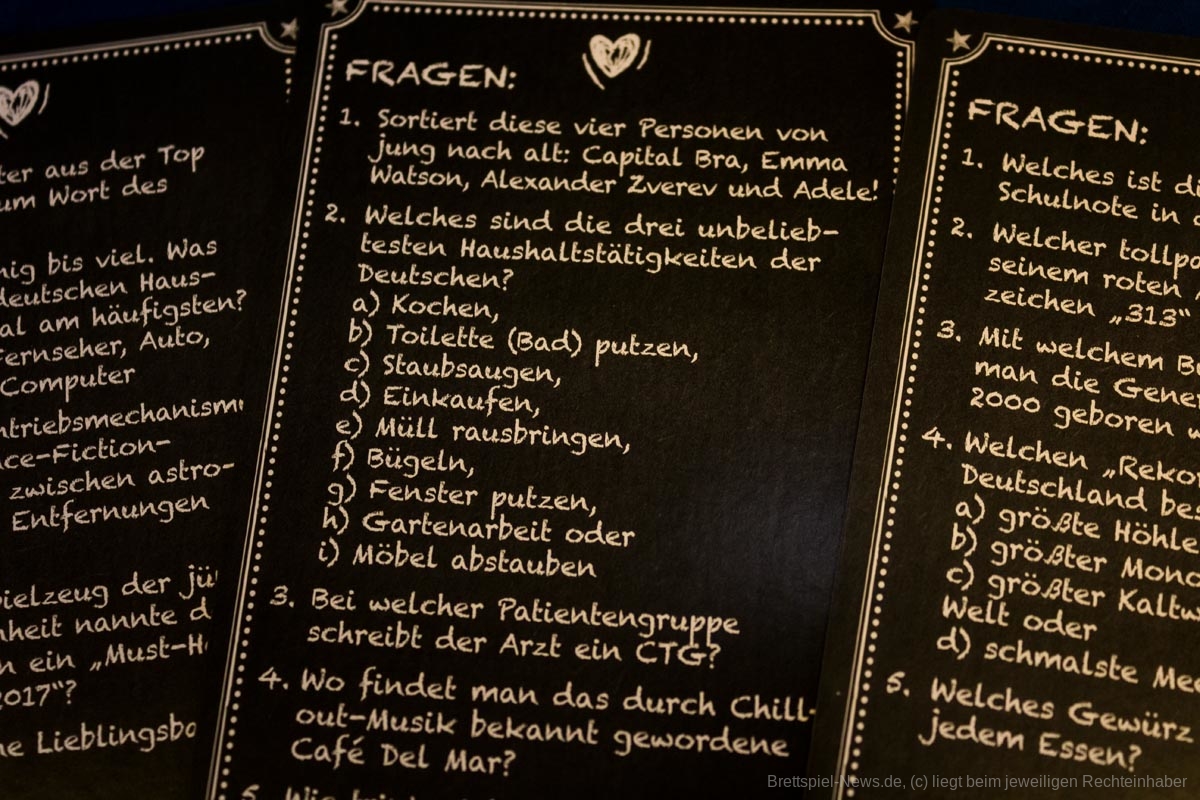 aus der Top
Wort des
bis viel. Was
deutschen Haus-
am häufigsten?
Fernseher, Auto,
Computer
zwischen astro-
Entfernungen
nannte
ein „Must-H
2017“?
FRAGEN:
1. Sortiert diese vier Personen von
jung nach alt: Capital Bra, Emma
Watson, Alexander Zverev und Adele!
2. Welches sind die drei unbelieb-
testen Haushaltstätigkeiten der
Deutschen?
a) Kochen,
b) Toilette (Bad) putzen,
c) Staubsaugen,
d) Einkaufen,
e) Müll rausbringen,
f) Bügeln,
g) Fenster putzen,
h) Gartenarbeit oder
i) Möbel abstauben
3. Bei welcher Patientengruppe
schreibt der Arzt ein CTG?
4. Wo findet man das durch Chill-
out-Musik bekannt gewordene
Café Del Mar?
5.
FRAGEN:
1. Welches ist
Schulnote in
2. Welcher
seinem roten
zeichen „313“
3. Mit welchem
man die
2000 geboren
4. Welchen
Deutschland
a) größte Höhle
b) größter
c) größter
Welt oder
d) schmalste
5. Welches Gewürz
jedem Essen?
Brettspiel-News.de, (c) liegt beim jeweiligen Rechteinhaber